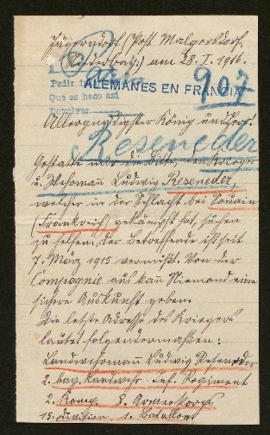 Jägerndorf (Post Malgersdorf
(Niedbay.) am 28. I. 1916.
Pedir
Que se haga así
ALEMANES EN FRANCIA
907
Allergnädigster König und
Reseneder
Gestatte mir die Bitte, den Krieger
u. Wehrmann Ludwig Reseneder,
welcher in der Schlacht bei
(Frankreich) gekämpft hat,
zu Der Betreffende ist seit
7. März 1915 vermißt. Von der
Compagnie aus kann Niemand eine
sichere Auskunft geben.
Die letzte Adresse des Kriegers
lautet folgentermaßen:
Landwehrmann Ludwig Reseneder
2. bay. Landwehr Inf. Regiment
2. Komp. 8. Armeekorps
15. Division 1. Bataillon